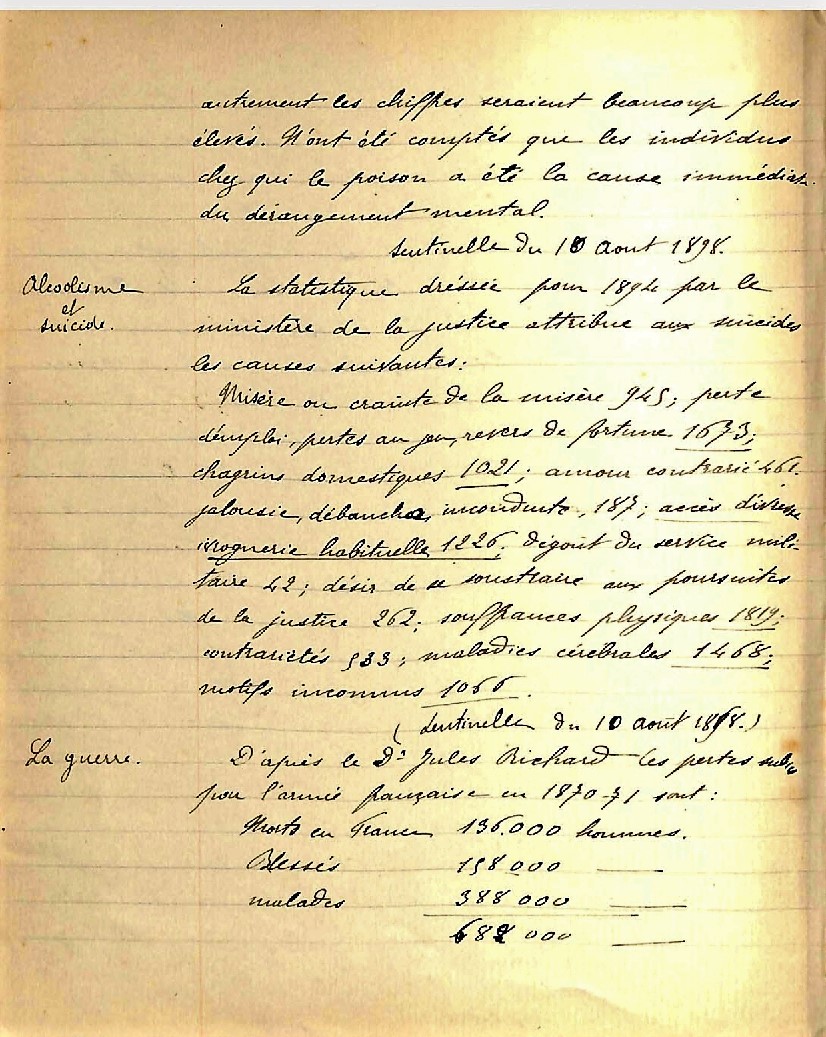 autrement les chiffres seraient beaucoup plus
élevés. N'ont été comptés que les individus
chez qui le poison a été la cause immédiate
du dérangement mental.
Sentinelle du 10 Aout 1898.
Alcoolisme
et
suicide.
La statistique dréssée pour 1894 par le
ministère de la justice attribue aux suicides
les causes suivantes:
Misère ou crainte de la misère 945; perte
d'emploi, pertes au jeu, revers de fortune 1673;
chagrins domestiques 1021; amour contrarié 461.
jalousie, débauche, inconduite, 187; accès d'ivresse
ivrognerie habituelle 1226; dégout du service mili-
taire 42; désir de se soustraire aux poursuites
de la justice 262; souffrances physiques 1819;
contrariétés 533; maladies cérébrales 1468;
motifs inconnus 1066.
(Sentinelle du 10 aout 1898.)
La guerre.
D'après le Dr Jules Richard les pertes subies
pour l'armée française en 1870-71 sont:
Morts en France 136.000 hommes.
Blessés 158 000 ——
malades 388 000 ——
682 000 ——